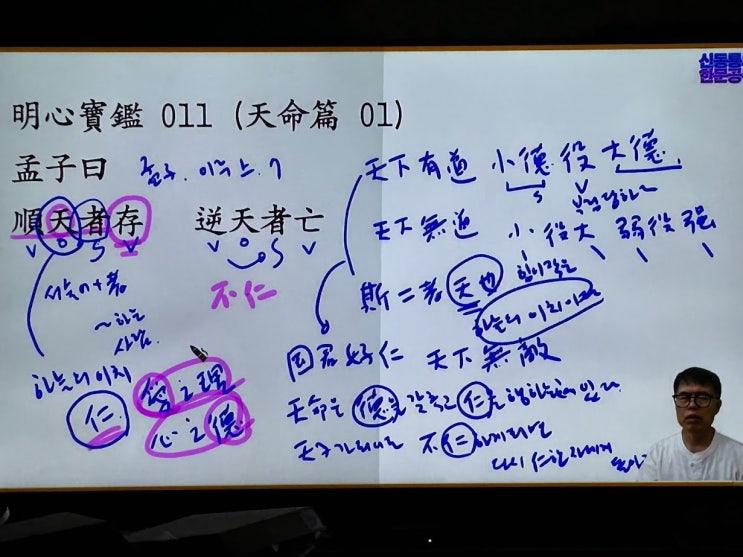 신동릉
한문공
明心寶鑑 011 (天命篇 01)
孟子曰
順天者存 逆天者亡
V O S V V O S V
不仁
하늘의 이치
仁
愛之理
心之德
~하는
사람
天下有道 小德役大德
天下無道 小役大 弱役强
斯二者天也
하늘의 이치이다
国君好仁 天下無敵
天命은 德을 갖추고 仁을
不仁하게되면
다시 仁한 자에게